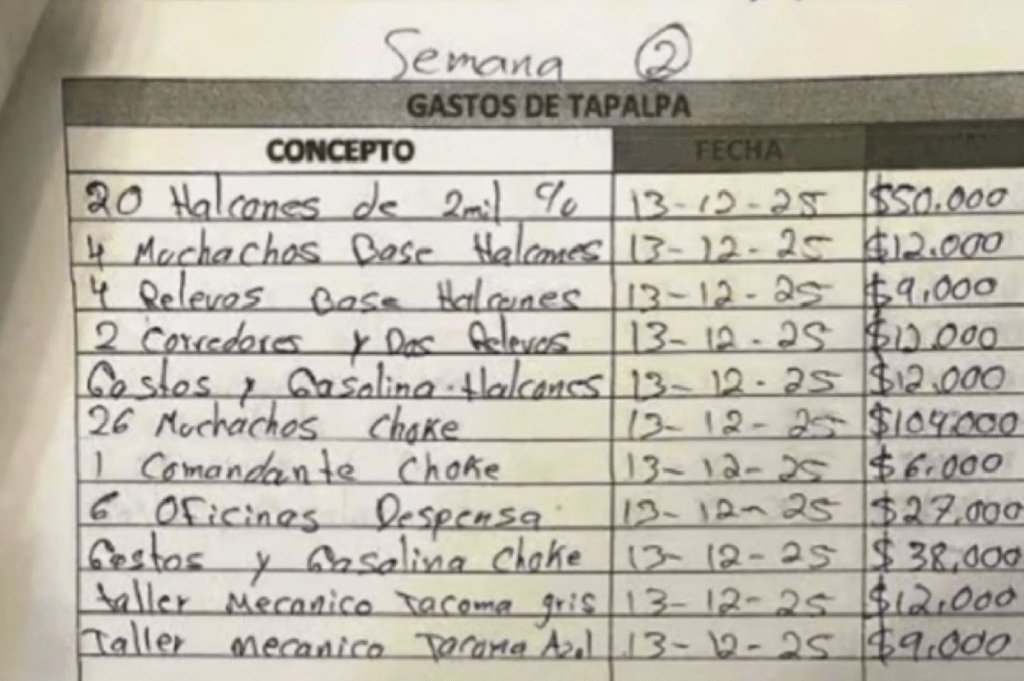 Semana 2
GASTOS DE TAPALPA
CONCEPTO FECHA
20 Halcones de 2mil c/u 13-12-25 $50.000
4 Muchachos Base Halcones 13-12-25 $12.000
4 Relevos Base Halcones 13-12-25 $9,000
2 Corredores y Dos Relevos 13-12-25 $12.000
Gastos y Gasolina Halcones 13-12-25 $12,000
26 Muchachos Choke 13-12-25 $104.000
1 Comandante Choke 13-12-25 $6.000
6 Oficinas Despensa 13-12-25 $27,000
Gastos y Gasolina Choke 13-12-25 $38,000
taller Mecanico Tacoma gris 13-12-25 $12,000
Taller mecanico Tacoma Azul 13-12-25 $9,000